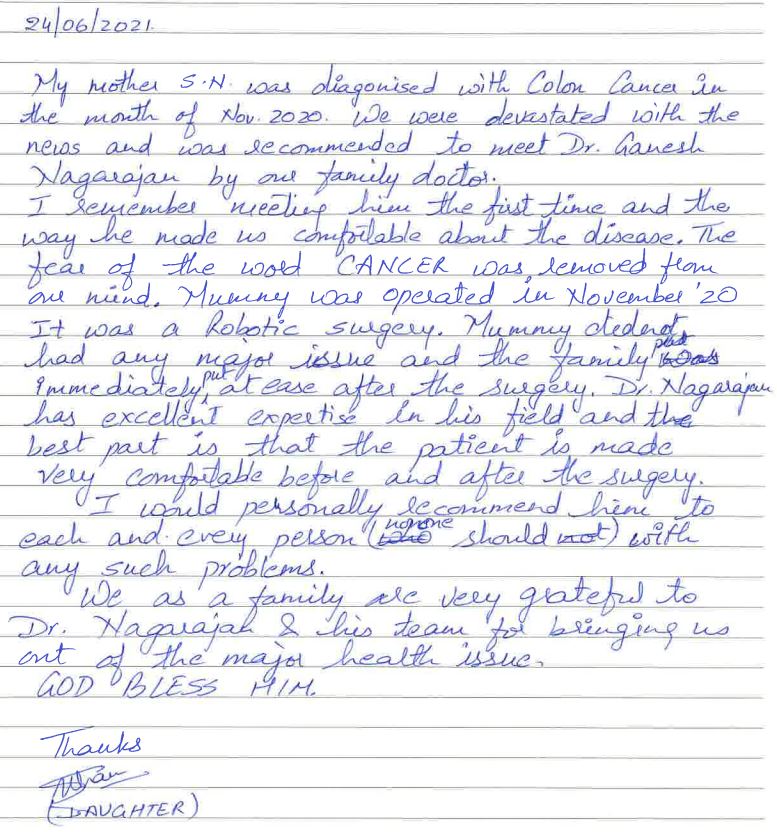 24/06/2021.
My mother S.N. was diagonised with Colon Cancer in
the month of Nov. 2020. We were devastated with the
news and was recommended to meet Dr. Ganesh
Nagarajan by our family doctor.
I remember meeting him the first time and the
way he made us comfortable about the disease. The
fear of the word CANCER was removed from
our mind. Mummy was operated in November '20
It was a Robotic surgery. Mummy didn't
had any major issue and the family
immediately put at ease after the surgery. Dr. Nagarajan
has excellent expertise in his field and the
best part is that the patient is made
very comfortable before and after the surgery.
I would personally recommend him to
each and every person (no one should) with
any such problems.
We as a family are very grateful to
Dr. Nagarajan & his team for bringing us
out of the major health issue.
GOD BLESS HIM.
Thanks
(DAUGHTER)